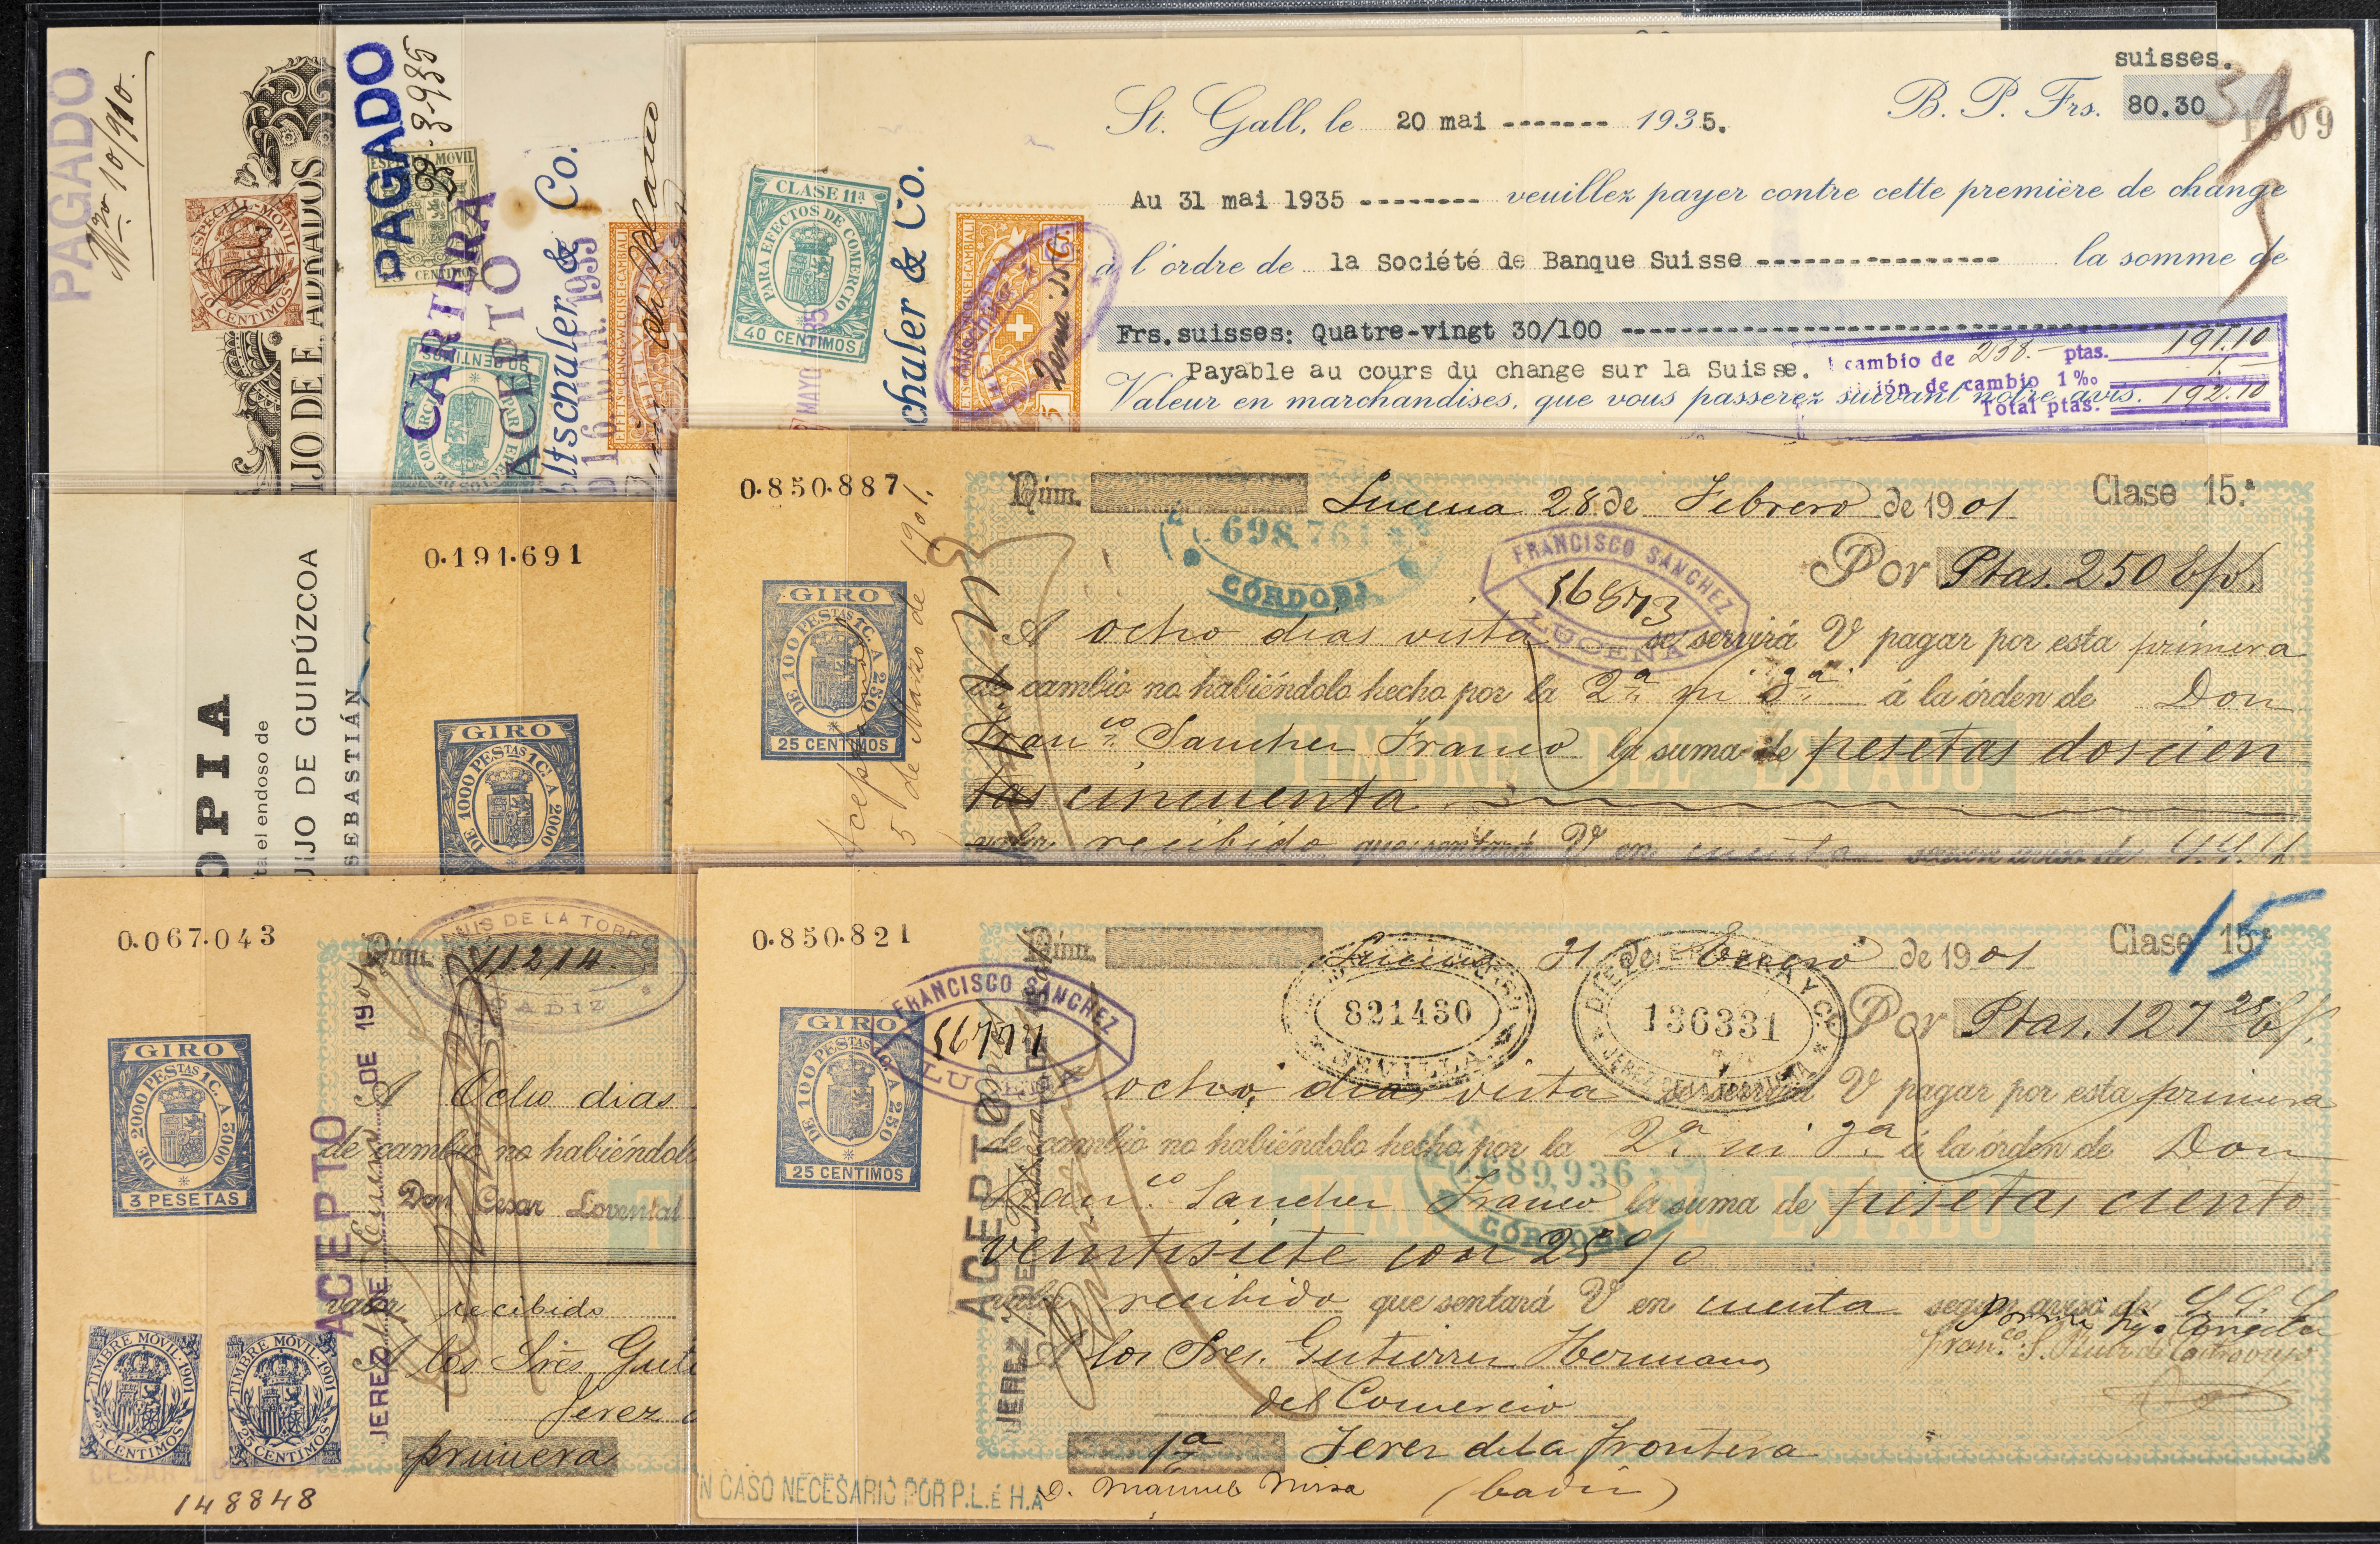 PAGADO
10/910.
ESPECIAL-MOVIL
10 CENTIMOS
IJO DE E. ADRADOS
PAGADO
3-935
ESPECIAL MOVIL
15 CENTIMOS
CARTERA
ACEPTO
90 CENTIMOS
PARA EFECTOS DE COMERCIO
ltschuler & Co.
16 MAR. 1935
EFFETS-CHANGE-WECHSEL-CAMBIALI
HELVETIA
suisses.
St. Gall, le 20 mai ------- 1935.
B. P. Frs. 80.30
1609
CLASE 11ª
PARA EFECTOS DE COMERCIO
40 CENTIMOS
MAYO 1935
chuler & Co.
Au 31 mai 1935 -------- veuillez payer contre cette première de change
à l'ordre de la Société de Banque Suisse ---------------- la somme de
Frs.suisses: Quatre-vingt 30/100 ----------------
Payable au cours du change sur la Suisse.
Valeur en marchandises, que vous passerez suivant notre avis.
cambio de 238.- ptas. 191.10
ión de cambio 1‰ 1.-
Total ptas. 192.10
OPIA
ta el endoso de
IJO DE GUIPÚZCOA
SEBASTIÁN
0.191.691
GIRO
DE 1000 PESTAS 1C. A 2000
0.850.887
Núm.
Lucena 28 de Febrero de 1901
Clase 15.ª
698.761
CÓRDOBA
FRANCISCO SANCHEZ
56873
LUCENA
Por Ptas. 250 
GIRO
DE 100 PESTAS 1C. A 250
25 CENTIMOS
Aceptamos
5 de Marzo de 1901.
A ocho dias vista se servirá V pagar por esta primera
de cambio no habiéndolo hecho por la 2ª ni 3ª á la órden de Don
Franco Sanchez Franco la suma de pesetas doscien
tas cincuenta
TIMBRE DEL ESTADO
valor recibido que sentará V en cuenta segun aviso de S.S.S.
0.067.043
LUIS DE LA TORRE
Núm. 11214
CADIZ
GIRO
DE 2000 PESTAS 1C. A 3000
3 PESETAS
A Ocho dias
de cambio no habiéndolo
Don Cesar Lovental
valor recibido
A los Sres Guti
Jerez
primera
ACEPTO
JEREZ DE Enero DE 190
TIMBRE MÓVIL·1901
25 CENTIMOS
TIMBRE MÓVIL·1901
25 CENTIMOS
148848
0.850.821
Núm.
Lucena 31 de Enero de 1901
Clase 15ª
15
FRANCISCO SANCHEZ
LUCENA
821430
SEVILLA
136331
JEREZ DE LA FRONTERA
Por Ptas. 127 25
GIRO
DE 100 PESTAS 1C. A 250
25 CENTIMOS
ACEPTO
JEREZ DE
ocho dias vista se servirá V pagar por esta primera
de cambio no habiéndolo hecho por la 2ª ni 3ª á la órden de Don
689,936
CÓRDOBA
Franco Sanchez Franco la suma de pesetas ciento
TIMBRE DEL ESTADO
veintisiete con 25%
valor recibido que sentará V en cuenta segun aviso de S.S.S.
A los Sres. Gutierrez Hermanos
del Comercio
1ª Jerez de la Frontera
EN CASO NECESARIO POR P.L. É H. A D. Manuel Misa (Cadiz)